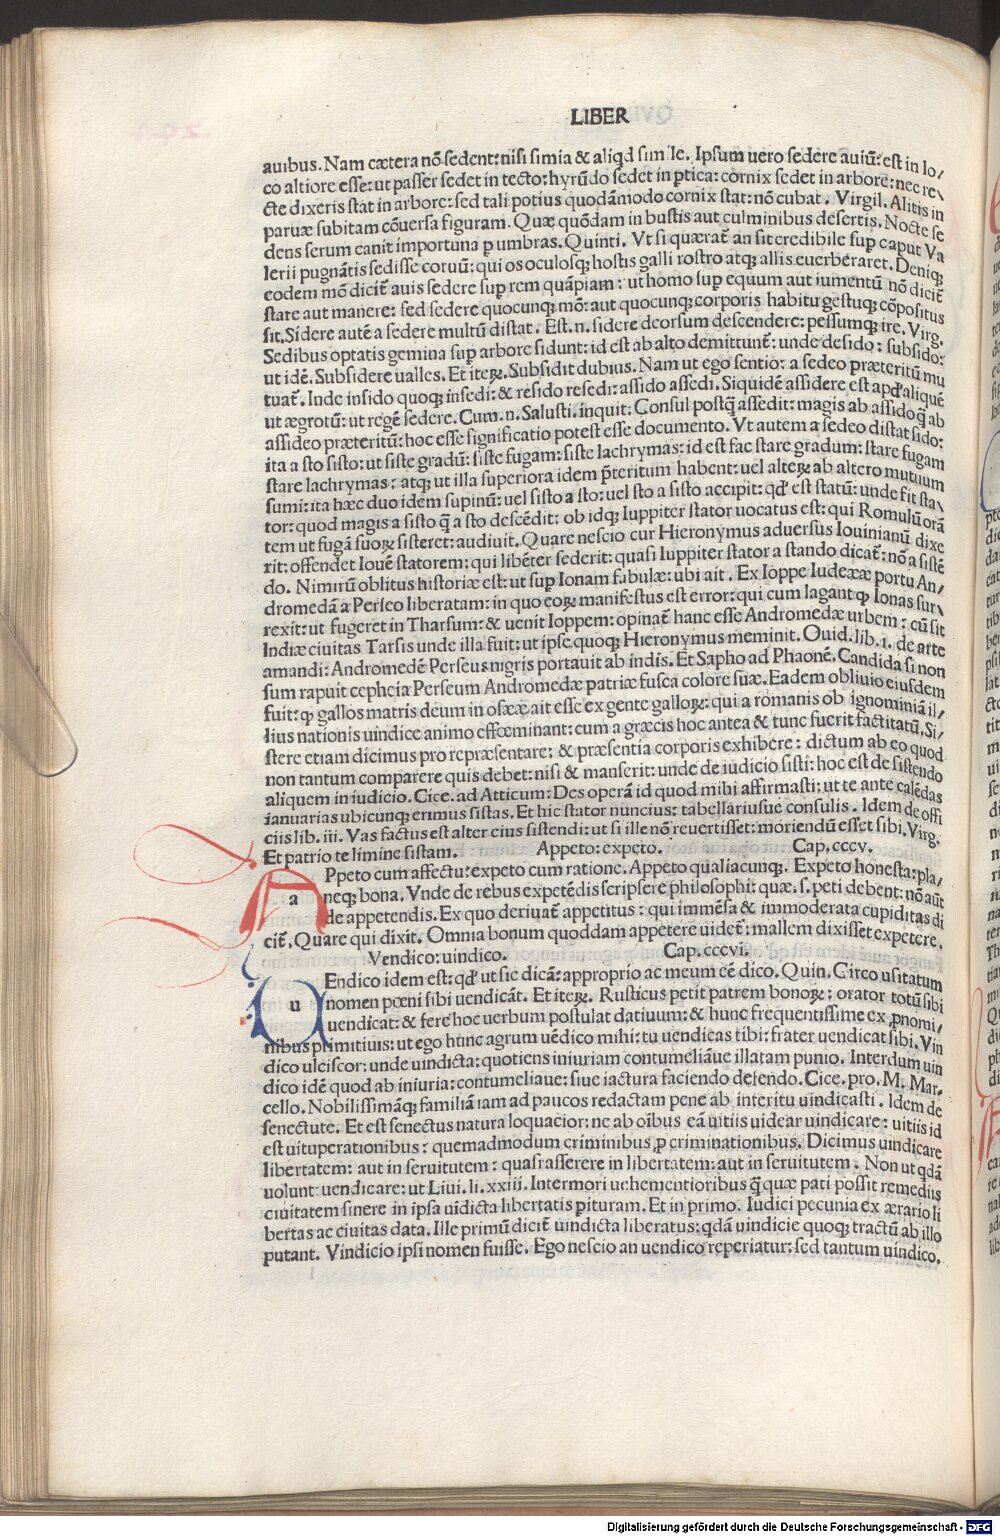 LIBER
auibus. Nam cætera nō sedent: nisi simia & aliqd simile. Ipsum uero sedere auiū: est in lo/
co altiore esse: ut passer sedet in tecto: hyrūdo sedet in ꝑtica: cornix sedet in arbore: nec re\
cte dixeris stat in arbore: sed tali potius quodāmodo cornix stat: nō cubat. Virgil. Alitis in
paruæ subitam cōuersa figuram. Quæ quōdam in bustis aut culminibus desertis. Nocte se
dens serum canit importuna ꝑ umbras. Quinti. Vt si quærat̄ an sit credibile sup caput Va
lerii pugnātis sedisse coruū: qui os oculosq; hostis galli rostro atq; allis euerberaret. Deniq;
eodem mō dicit̄ auis sedere sup rem quāpiam: ut homo sup equum aut iumentū nō dicit̄
stare aut manere: sed sedere quocunq; mō: aut quocunq; corporis habitu gestuq; cōpositus
sit. Sidere autē a sedere multū distat. Est. n. sidere deorsum descendere: pessumq; ire. Virg.
Sedibus optatis gemina sup arbore sidunt: id est ab alto demittunt̄: unde desido: subsido:
ut idē. Subsidere ualles. Et iteꝝ. Subsidit dubius. Nam ut ego sentio: a sedeo præteritū mu
tuat̄. Inde insido quoq; insedi: & resido resedi: assido assedi. Siquidē assidere est apd' aliquē
ut ægrotū: ut regē sedere. Cum. n. Salusti. inquit: Consul postq̄ assedit: magis ab assido q̄ ab
assideo præteritū: hoc esse significatio potest esse documento. Vt autem a sedeo distat sido:
ita a sto sisto: ut siste gradū: siste fugam: siste lachrymas: id est fac stare gradum: stare fugam
stare lachrymas: atq; ut illa superiora idem p̄teritum habent: uel alteꝝ ab altero mutuum
sumi: ita hæc duo idem supinū: uel sisto a sto: uel sto a sisto accipit: qd' est statū: unde fit sta\
tor: quod magis a sisto q̄ a sto descēdit: ob idq; Iuppiter stator uocatus est: qui Romulū orā
tem ut fugā suoꝝ sisteret: audiuit. Quare nescio cur Hieronymus aduersus Iouinianū dixe
rit: offendet Iouē statorem: qui libēter sederit: quasi Iuppiter stator a stando dicat̄: nō a sistē
do. Nimirū oblitus historiæ est: ut sup Ionam fabulæ: ubi ait. Ex Ioppe Iudeææ portu An/
dromedā a Perseo liberatam: in quo eoꝝ manifestus est error: qui cum lagant ꝙ Ionas sur\
rexit: ut fugeret in Tharsum: & uenit Ioppem: opinat̄ hanc esse Andromedæ urbem: cū sit
Indiæ ciuitas Tarsis unde illa fuit: ut ipse quoq; Hieronymus meminit. Ouid. lib. 1. de arte
amandi: Andromedē Perseus nigris portauit ab indis. Et Sapho ad Phaonē. Candida si non
sum rapuit cepheia Perseum Andromedæ patriæ fusca colore suæ. Eadem obliuio eiusdem
fuit: ꝙ gallos matris deum in oseææ ait esse ex gente galloꝝ: qui a romanis ob ignominiā il/
lius nationis uindice animo effœminant: cum a græcis hoc antea & tunc fuerit factitatū. Si/
stere etiam dicimus pro repræsentare: & præsentia corporis exhibere: dictum ab eo quod
non tantum comparere quis debet: nisi & manserit: unde de iudicio sisti: hoc est de sistendo
aliquem in iudicio. Cice. ad Atticum: Des operā id quod mihi affirmasti: ut te ante calēdas
ianuarias ubicunq; erimus sistas. Et hic stator nuncius: tabellariusue consulis. Idem de offi
ciis lib. iii. Vas factus est alter eius sistendi: ut si ille nō reuertisset: moriendū esset sibi. Virg.
Et patrio te limine sistam. Appeto: expeto. Cap. cccv.
a Ppeto cum affectu: expeto cum ratione. Appeto qualiacunq;. Expeto honesta: pla/
neq; bona. Vnde de rebus expetēdis scripsere philosophi: quæ. s. peti debent: nō aūt
de appetendis. Ex quo deriuat̄ appetitus: qui immēsa & immoderata cupiditas di
cit̄. Quare qui dixit. Omnia bonum quoddam appetere uidet̄: mallem dixisset expetere.
Vendico: uindico. Cap. cccvi.
u Endico idem est: qd' ut sic dicā: approprio ac meum eē dico. Quin. Circo usitatum
nomen pœni sibi uendicāt. Et iteꝝ. Rusticus petit patrem bonoꝝ: orator totū sibi
uendicat: & fere hoc uerbum postulat datiuum: & hunc frequentissime ex ꝓnomi/
nibus primitiuis: ut ego hunc agrum uēdico mihi: tu uendicas tibi: frater uendicat sibi. Vin
dico ulciscor: unde uindicta: quotiens iniuriam contumeliāue illatam punio. Interdum uin
dico idē quod ab iniuria: contumeliaue: siue iactura faciendo defendo. Cice. pro. M. Mar.
cello. Nobilissimāq; familiā iam ad paucos redactam pene ab interitu uindicasti. Idem de
senectute. Et est senectus natura loquacior: ne ab oībus eā uitiis uidear uindicare: uitiis id
est uituperationibus: quemadmodum criminibus ꝓ criminationibus. Dicimus uindicare
libertatem: aut in seruitutem: quasi asserere in libertatem: aut in seruitutem. Non ut qdā
uolunt uendicare: ut Liui. li. xxiii. Intermori uehementioribus q̄ quæ pati possit remediis
ciuitatem sinere in ipsa uīdicta libertatis ꝑituram. Et in primo. Iudici pecunia ex ærario li
bertas ac ciuitas data. Ille primū dicit̄ uindicta liberatus: qdā uindicie quoq; tractū ab illo
putant. Vindicio ipsi nomen fuisse. Ego nescio an uendico reperiatur: sed tantum uindico.
Digitalisierung gefördert durch die Deutsche Forschungsgemeinschaft - DFG